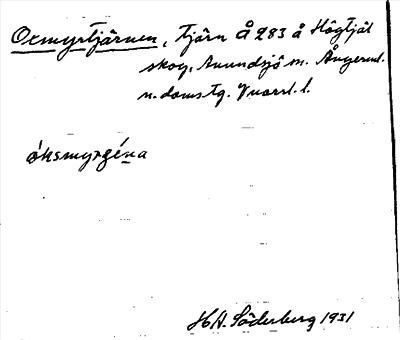 Oxmyrtjärnen, Tjärn Å 283 å Högtjäl
skog, Anundsjö m. Ångerml.
n. doms.tg. Vnorrl. l.
óksmyrɡéna
H A. Söderberg 1931